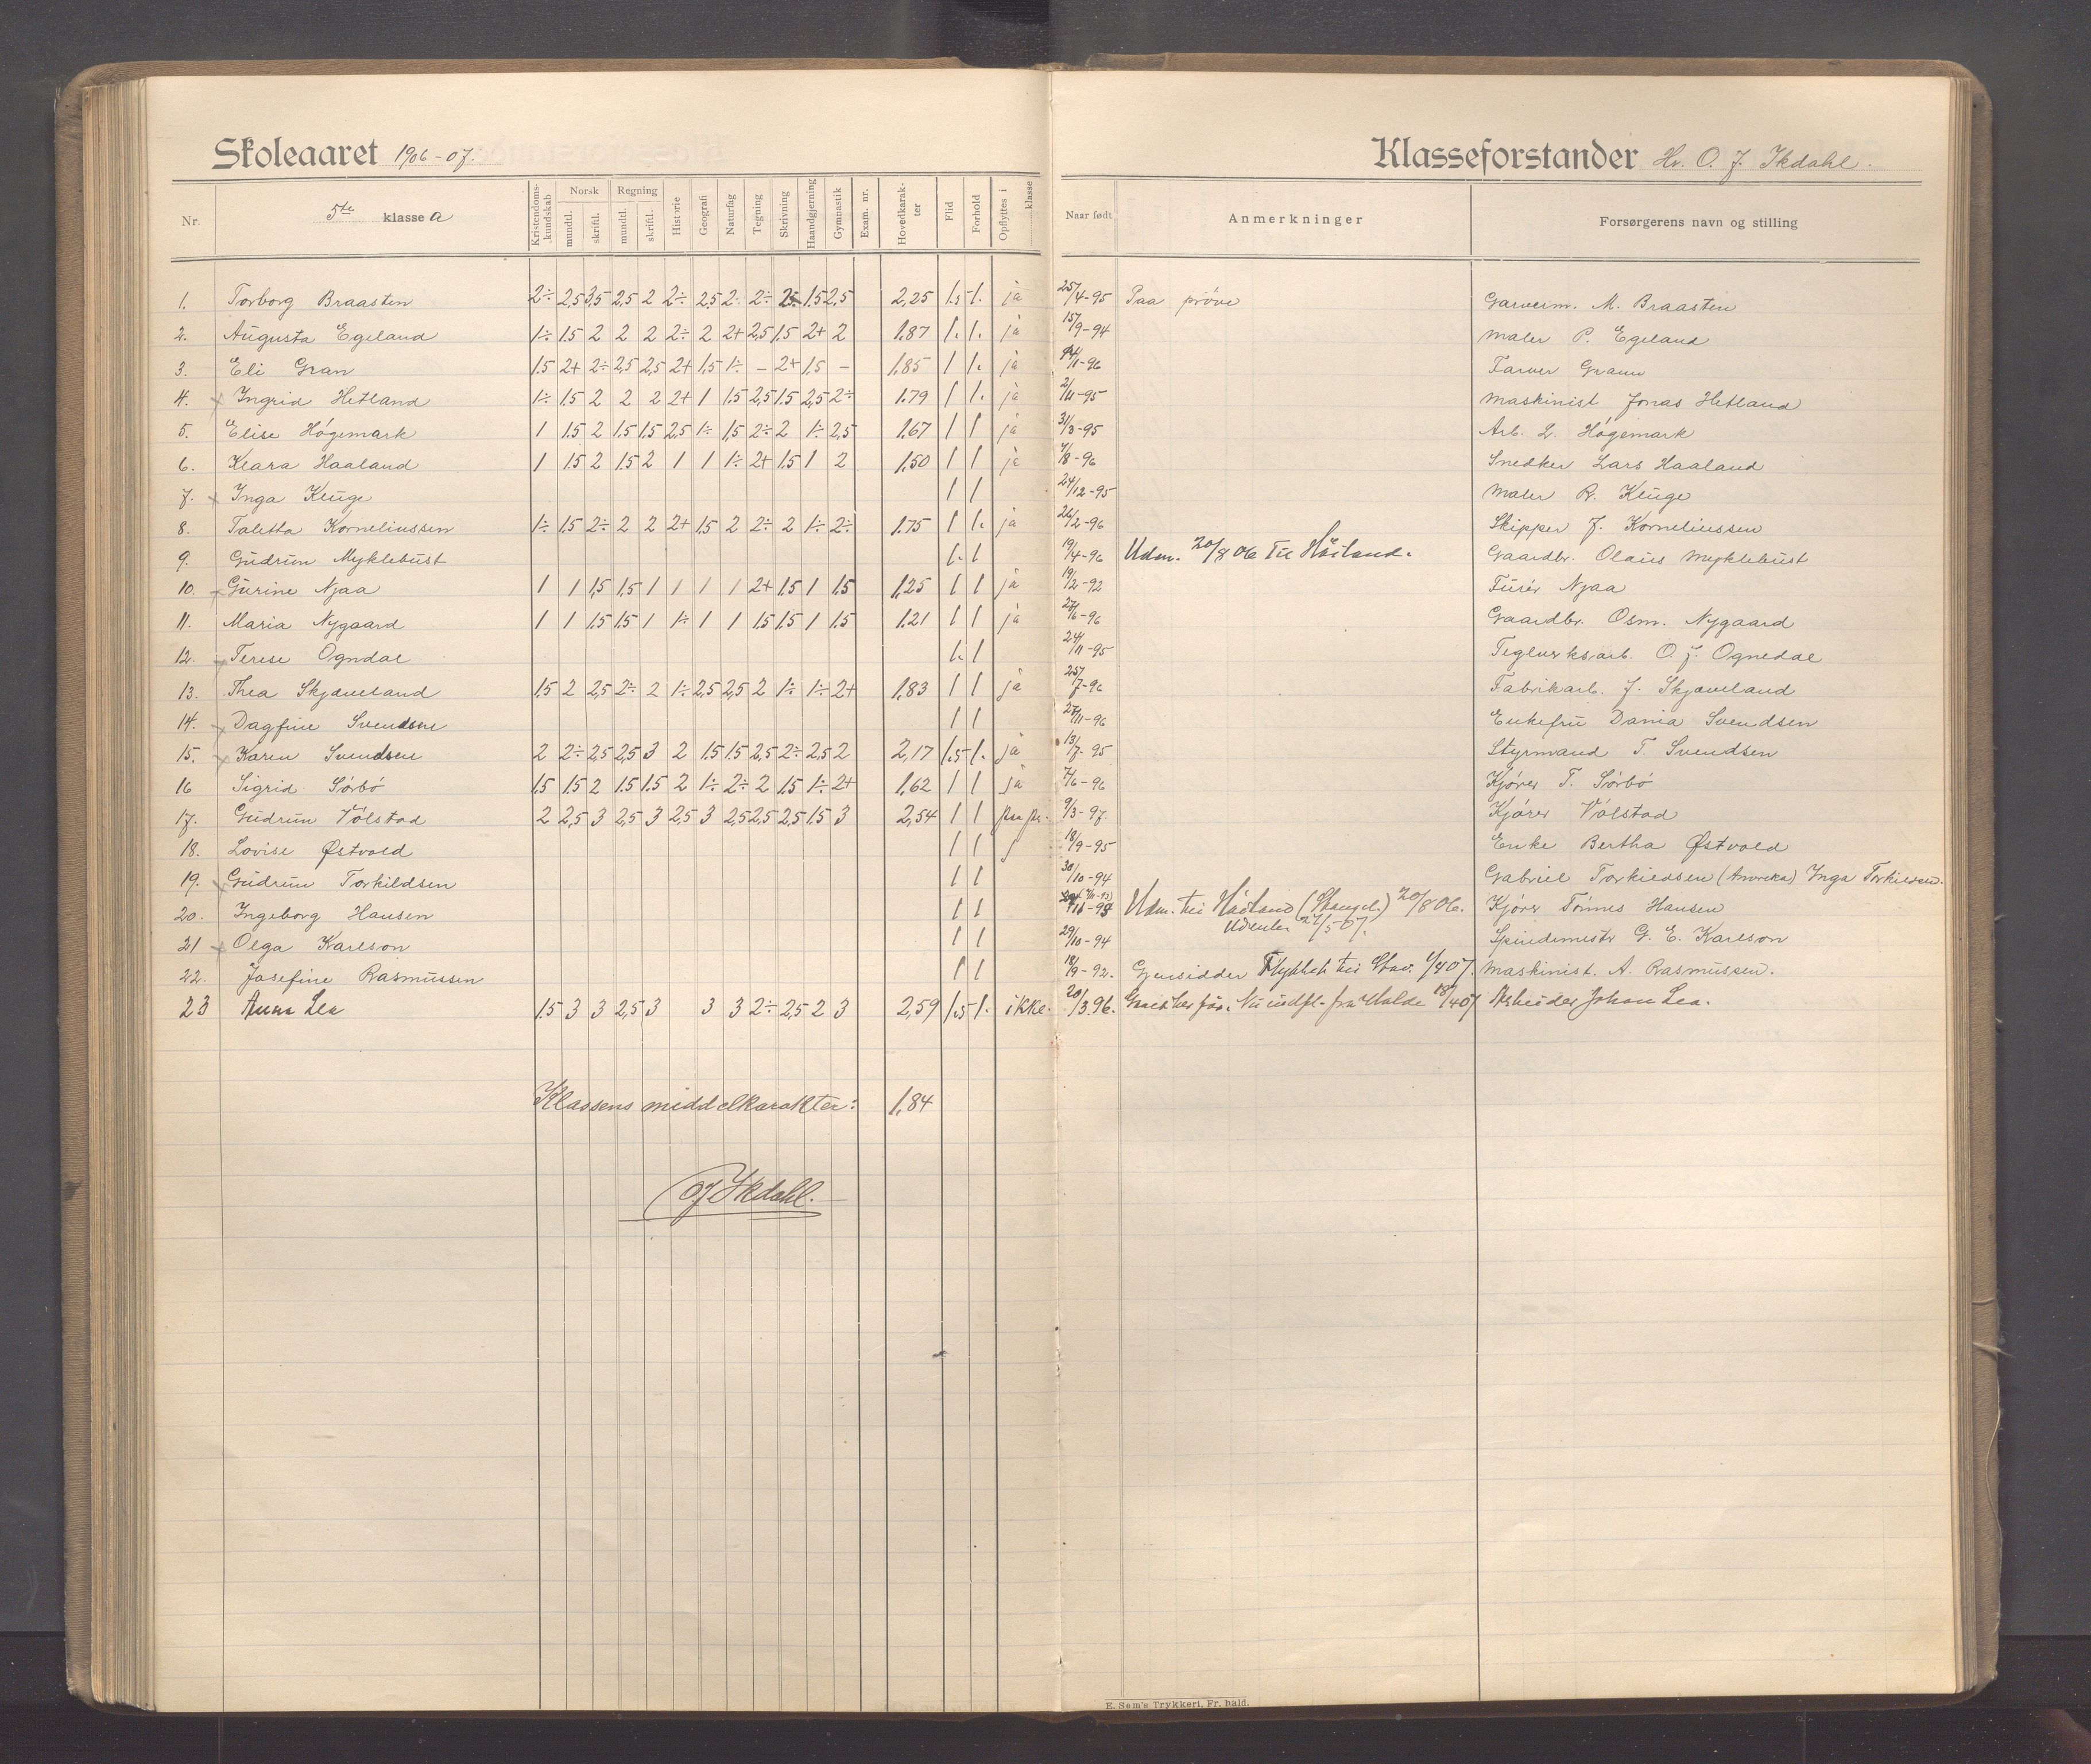 Skoleaaret 1906-07.
Klasseforstander Hr. O. J. Ikdahl.
Nr. 5te klasse a Kristendoms-kundskab Norsk mundtl. skriftl. Regning mundtl. skriftl. Historie Geografi Naturfag Tegning Skrivning Haandgjerning Gymnastik Exam. nr. Hovedkarak-ter Flid Forhold Opflyttes i klasse Naar født Anmerkninger Forsørgerens navn og stilling
1. Torborg Braasten 2÷ 2,5 3,5 2,5 2 2÷ 2,5 2÷ 2÷ 2÷ 1,5 2,5 2,25 1.5 1. ja 25/4-95 Paa prøve Garverm. M. Braasten
2. Augusta Egeland 1÷ 1.5 2 2 2 2÷ 2 2+ 2,5 1.5 2+ 2 1,87 1. 1. ja 15/9-94 Maler P. Egeland
3. Eli Gran 1.5 2+ 2÷ 2,5 2,5 2+ 1,5 1÷ – 2+ 1,5 – 1,85 1 1. ja 14/1-96 Farver Grann
4. Ingrid Hetland 1÷ 1.5 2 2 2 2+ 1 1.5 2,5 1.5 2,5 2÷ 1.79 1 1. ja 2/11-95 Maskinist Jonas Hetland
5. Elise Høgemark 1 1.5 2 1.5 1.5 2,5 1÷ 1,5 2÷ 2 1÷ 2,5 1.67 1 1 ja 31/3-95 Arb. L. Høgemark
6. Klara Haaland 1 1.5 2 1.5 2 1 1 1÷ 2+ 1.5 1 2 1,50 1 1 ja 7/8-96 Snedker Lars Haaland
7. Inga Kluge 1 1 24/12-95 Maler R. Kluge
8. Taletta Korneliussen 1÷ 1.5 2÷ 2 2 2+ 1.5 2 2÷ 2 1÷ 2÷ 1.75 1 1. ja 26/2-96 Skipper J. Korneliussen
9. Gudrun Myklebust 1. 1 19/4-96 Udm. 20/8 06 til Håiland. Gaardbr. Olaus Myklebust
10. Gurine Njaa 1 1 1,5 1,5 1 1 1 1 2+ 1.5 1 1.5 1,25 1 1 ja 19/2-92 Furér Njaa
11. Maria Nygaard 1 1 1.5 1.5 1 1÷ 1 1 1.5 1.5 1 1.5 1.21 1 1 ja 27/6-96 Gaardbr. Osm. Nygaard
12. Terese Ogndal 1. 1 24/11-95 Teglverksarb. O. J. Ognedal
13. Thea Skjæveland 1.5 2 2,5 2÷ 2 1÷ 2,5 2,5 2 1÷ 1÷ 2+ 1,83 1 1 ja 25/7-96 Fabrikarb. J. Skjæveland
14. Dagfine Svendsen 1 1 27/11-96 Enkefru Dania Svendsen
15. Karen Svendsen 2 2÷ 2,5 2,5 3 2 1.5 1.5 2,5 2÷ 2,5 2 2,17 1.5 1. ja 13/7-95 Styrmand T. Svendsen
16 Sigrid Sørbø 1.5 1.5 2 1.5 1.5 2 1÷ 2÷ 2 1.5 1÷ 2+ 1,62 1 1 ja 7/6-96 Kjører T. Sørbø
17. Gudrun Vølstad 2 2,5 3 2,5 3 2,5 3 2,5 2,5 2,5 1.5 3 2,54 1 1 paa pr. 9/3-97. Kjører Vølstad
18. Lovise Østvold 1 1 18/9-95 Enke Bertha Østvold
19. Gudrun Torkildsen 1 1 30/10-94 Gabriel Torkildsen (Amerika) Inga Torkildsen.
20. Ingeborg Hansen 1 1 Udm. til Håiland (Stangel.) 20/8 06. Kjører Tønnes Hansen
Udenbr 27/5 07.
21 Olga Karlson 1 1 29/10-94 Spindemestr G. E. Karlson
22. Josefine Rasmussen 1 1 18/9-92. Gjensidder Flyttet til Stav. 1/4 07. Maskinist. A. Rasmussen.
23 Anna Lea 1.5 3 3 2,5 3 3 3 2÷ 2,5 2 3 2,59 1.5 1. ikke. 20/3.96. fra 18/4 07 Arbeider Johan Lea.
Klassens middelkarakter: 1,84
OJ Ikdahl.
E. Sem's Trykkeri, Fr. hald.